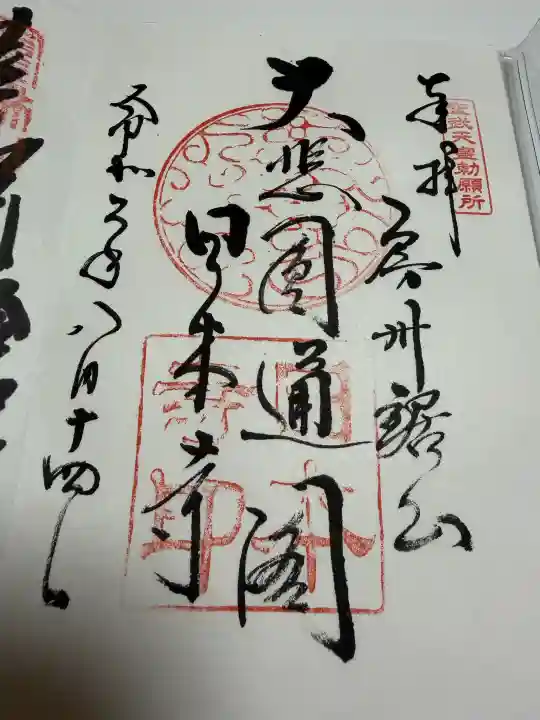 聖武天皇勅願所
奉拝
房州鋸山
大悲圓通閣
日本寺
日本寺印
令和六年八月十四日